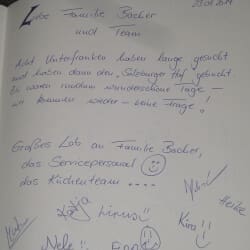 Liebe Familie Bacher
und Team
Acht Unterfranken haben lange gesucht
und haben dann den "Salzburger Hof" gebucht.
Es waren rundum wunderschöne Tage –
wir kommen wieder – keine Frage!
Großes Lob an Familie Bacher,
das Servicepersonal
das Küchenteam ....
Heike
Katja Linus Kira
Nele